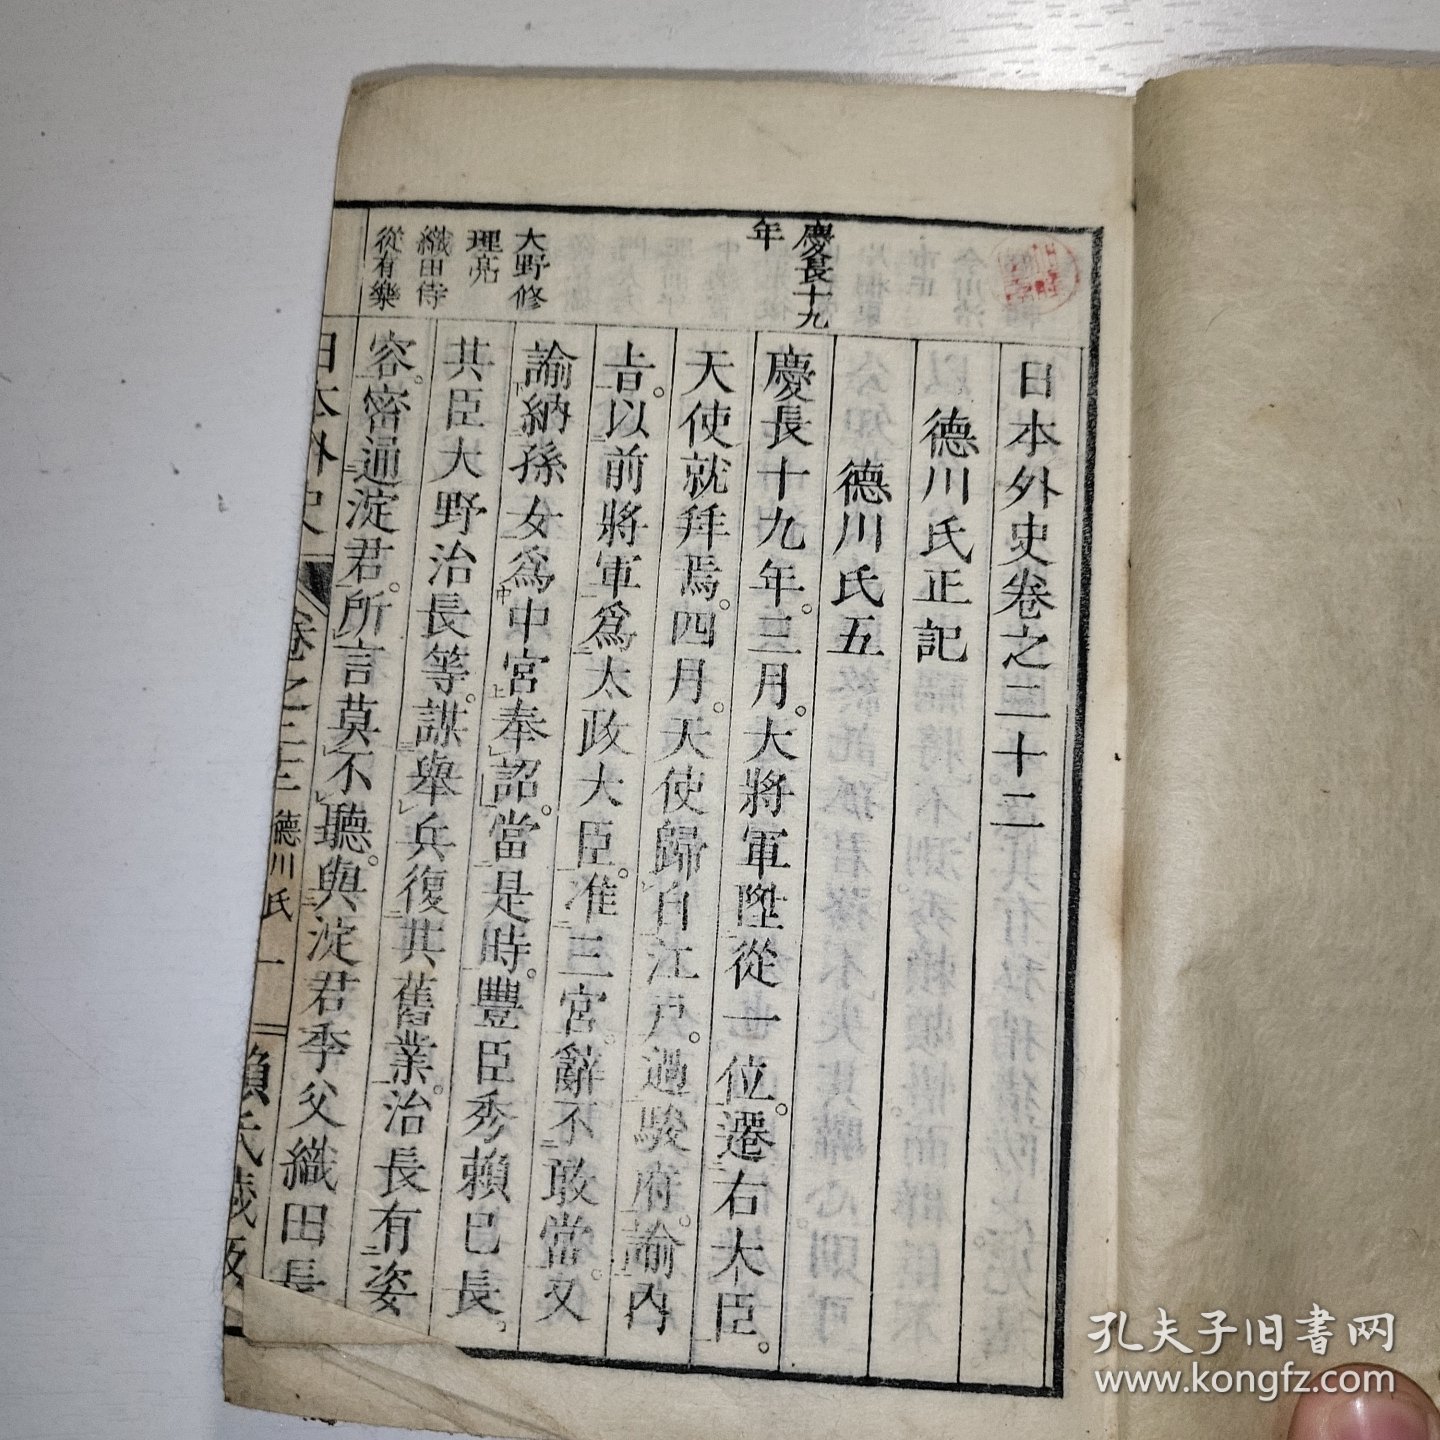 日本外史卷之二十二
德川氏正記
德川氏五
慶長十九年
慶長十九年。三月。大將軍陞從一位。遷右大臣。
天使就拜焉。四月。天使歸自江戶。過駿府。諭內
旨。以前將軍爲太政大臣。准三宮。辭不敢當。又
諭納孫女爲中宮奉詔。當是時。豐臣秀賴已長。
其臣大野治長等。謀舉兵復其舊業。治長有姿
容。密通淀君。所言莫不聽。與淀君季父織田長
大野修
理亮
織田侍
從有樂
日本外史
卷之二十二
德川氏
一
賴氏藏版
孔夫子旧書网
www.kongfz.com